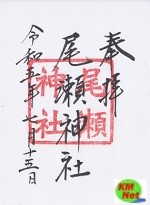 奉拝
尾瀬神社
尾瀬
神社
令和五年七月十五日
KM
Net